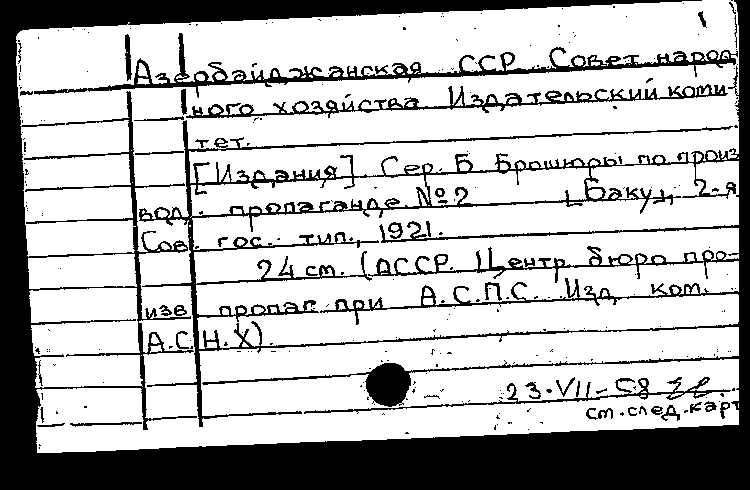 1
Азербайджанская ССР Совет народ
ного хозяйства Издательский коми-
тет.
[Издания]. Сер. Б Брошюры по произ
вод. пропаганде. №2 [Баку], 2-я
Сов. гос. тип., 1921.
24 см. (АССР. Центр. бюро про-
изв пропаг при А.С.П.С. Изд ком.
А.С.Н.Х).
23-VII-58
см.след.карт